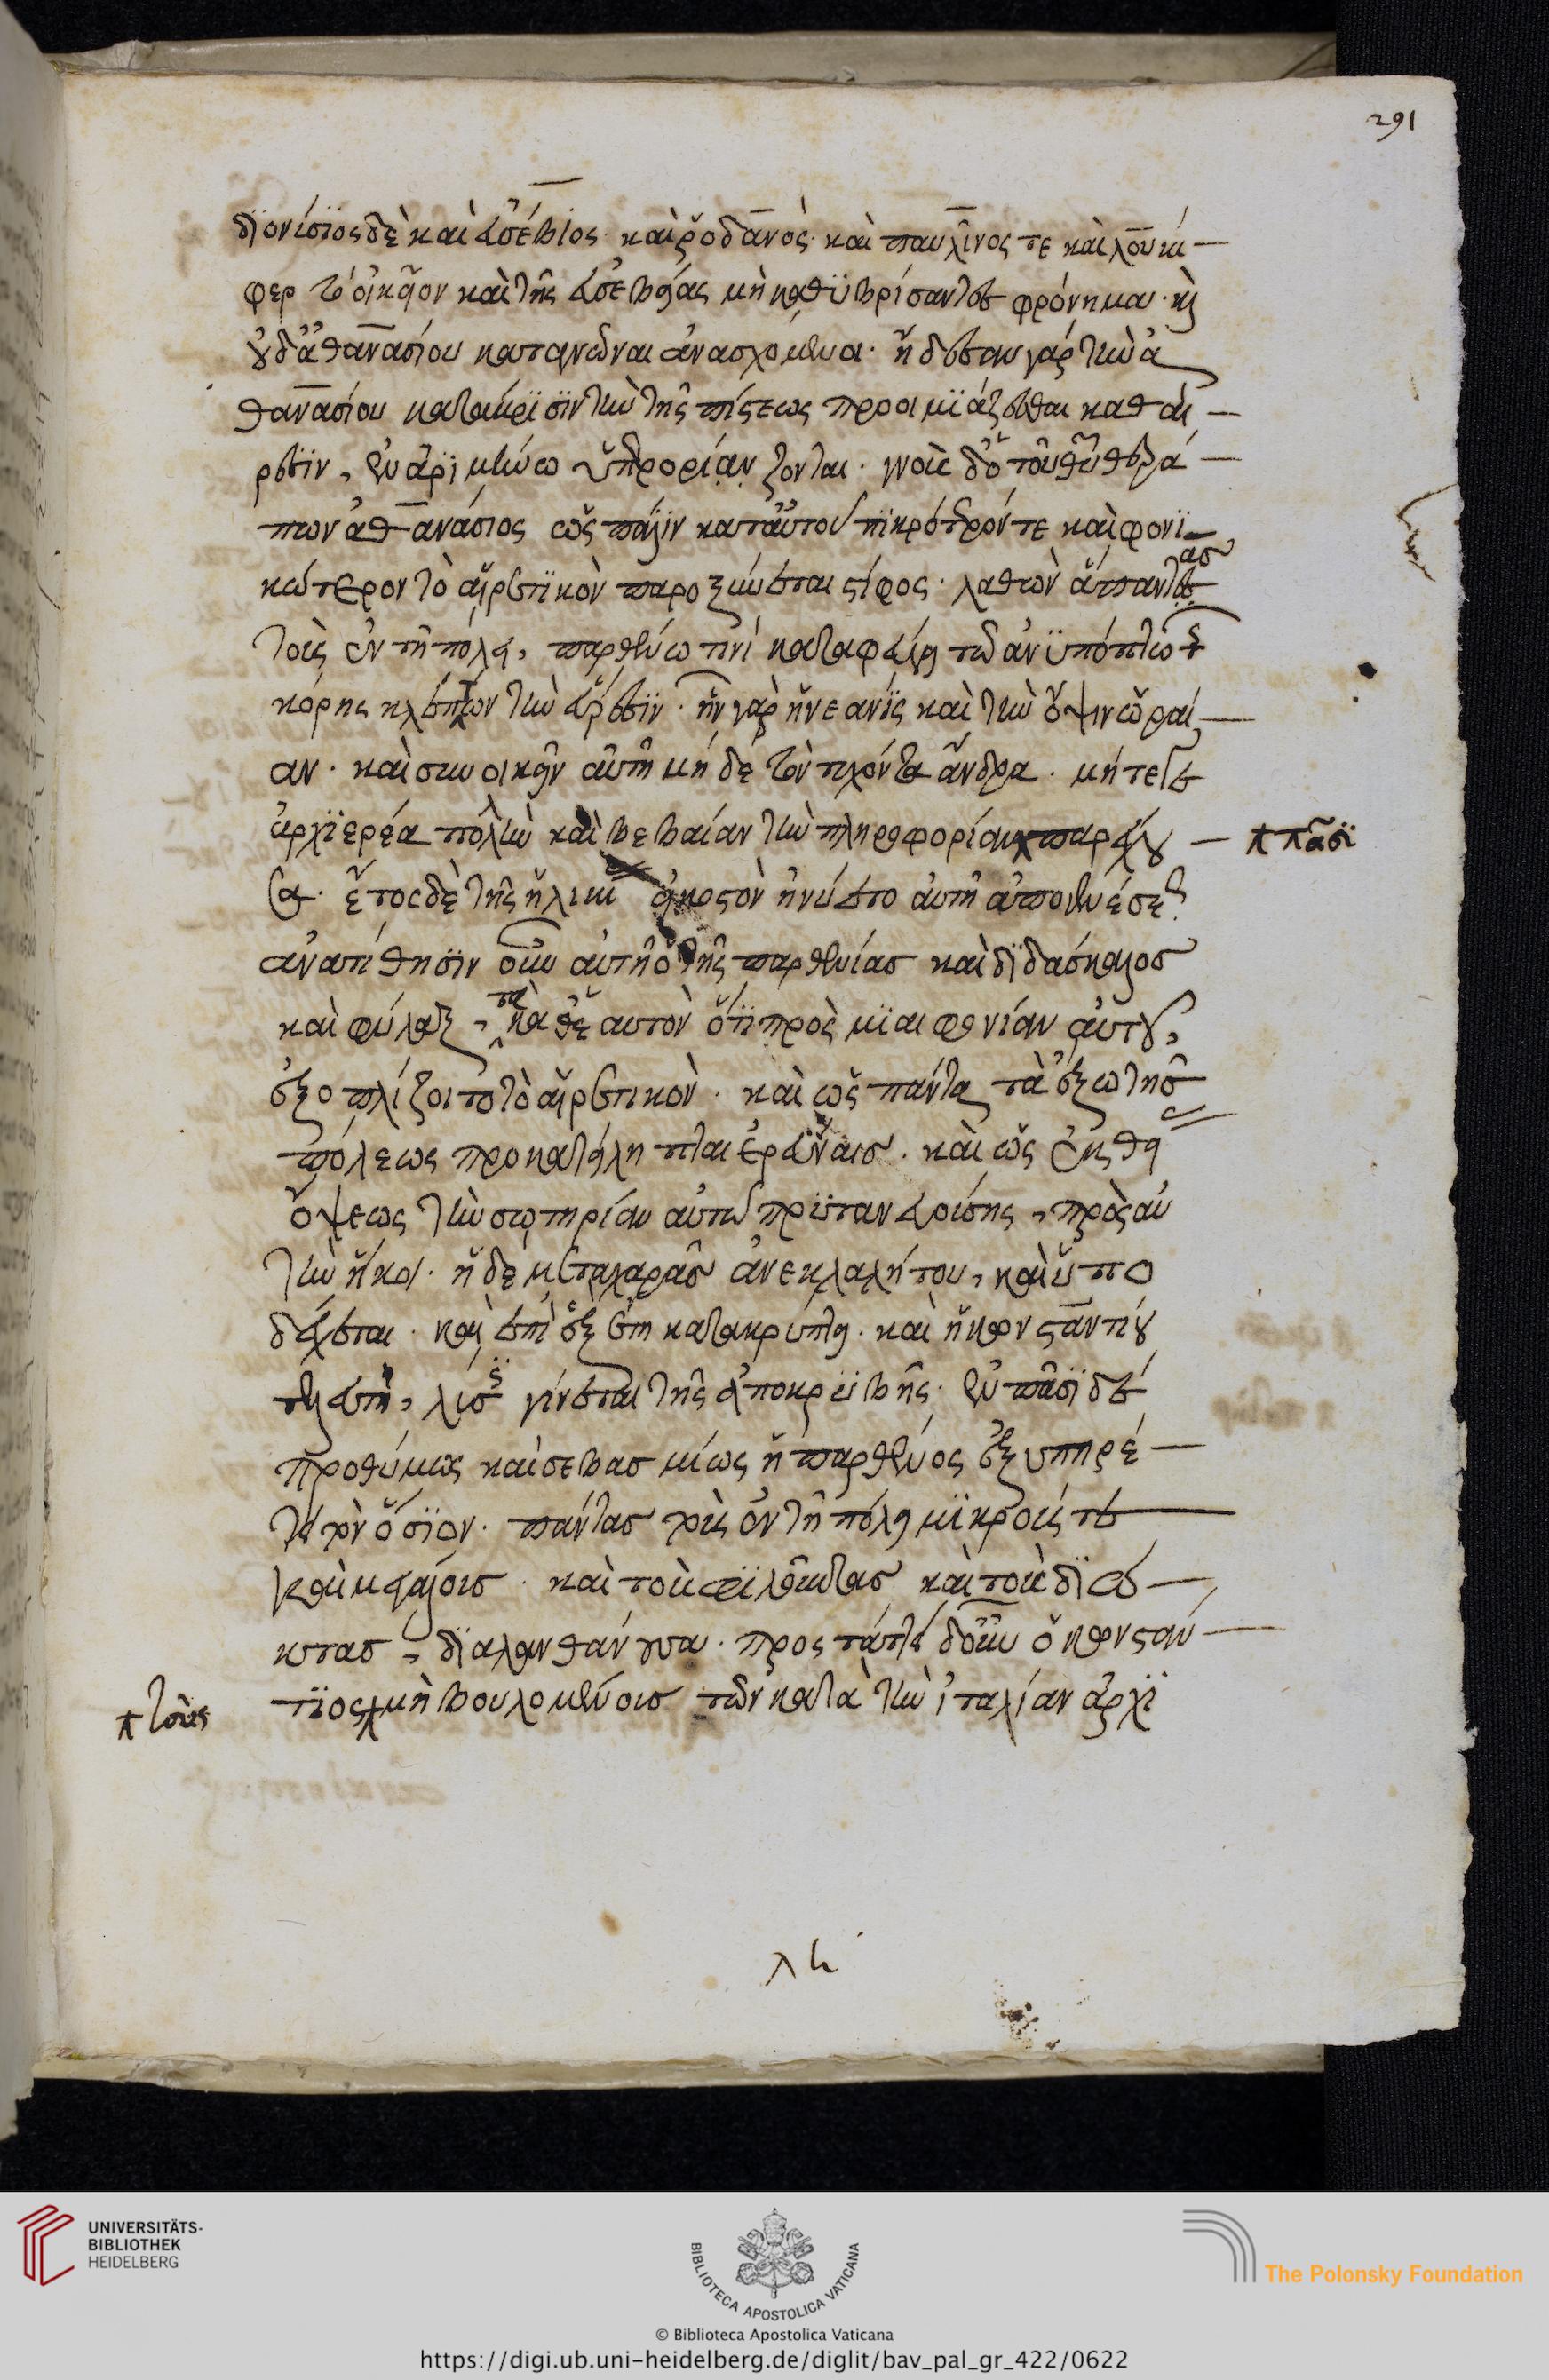 291
διονύσιος δὲ καὶ εὐσέβιος· καὶ ῥοδανὸς· καὶ παυλῖνος τε καὶ λουκί
φερ τὸ οἰκεῖον καὶ τῆς εὐσεβείας μὴ καθυβρίσαντες φρόνημα· καὶ
οὐδ' ἀθανασίου καταγνῶναι ἀνασχόμενοι· ἤδεσαν γὰρ τὴν ἀ
θανασίου κατάκρισιν τὴν τῆς πίστεως προοιμιάζεσθαι καθαί
ρεσιν, ἐν ἀριμίνω ὑπερορίαν ζονται· γνοὺς δὲ ὁ τοῦ θεοῦ θερά
πων ἀθανάσιος ὡς πάλιν κατ' αὐτοῦ πικρότερόν τε καὶ φονι
κώτερον τὸ αἱρετικὸν παροξύνεται στίφος· λαθὼν ἅπαντας
τοὺς ἐν τῇ πόλει, παρθένω τινὶ καταφεύγει τῶ ἀνυπόπτω τῆς
κόρης κλέπτων τὴν εὕρεσιν· ἦν γὰρ ἡ νεανὶς καὶ τὴν ὄψιν ὡραί
αν· καὶ συνοικεῖν αὐτῇ μὴ δὲ τὸν τυχόντα ἄνδρα· μήτε γε
ἀρχιερέα πολλὴν καὶ βεβαίαν τὴν πληροφορίαν παρείχε
το· ἔτος δὲ τῆς ἡλικίας εἰκοστὸν ἠνύετο αὐτῇ
ἀνατίθησιν οὖν αὐτῇ ὁ τῆς παρθενίας καὶ διδάσκαλος
καὶ φύλαξ, τὰ καθ' ἑαυτὸν ὅτι πρὸς μιαιφονίαν αὐτοῦ,
ἐξοπλίζοιτο τὸ αἱρετικὸν· καὶ ὡς πάντα τὰ ἔξω τῆς
πόλεως προκατείληπται ἐρεύναις· καὶ ὡς ἐκ θεί
ὄψεως τὴν σωτηρίαν αὐτῶ πρυτανευούσης, πρὸς αὐ
τὴν ἥκοι· ἡ δὲ μετὰ χαρᾶς ἀνεκλαλήτου, καὶ ὑπο
δέχεται· καὶ ἐπὶ ἓξ ἔτη κατακρύπτει· καὶ ἦκον σταντίου
τελευτῇ, λύσις γίνεται τῆς ἀποκρυβῆς· ἐν πᾶσι δὲ
προθύμως καὶ σεβασμίως ἡ παρθένος ἐξυπηρέ
τει τὸν ὅσιον· πάντας τοὺς ἐν τῇ πόλει μικρούς τε
καὶ μεγάλους· καὶ τοὺς φιλοῦντας καὶ τοὺς διώ
κοντας, διαλανθάνουσα· προστάττει δ' οὖν ὁ κωνστάν
τιος μὴ βουλομένοις τῶν κατὰ τὴν ἰταλίαν ἀρχι
πᾶσι
τοὺς
UNIVERSITÄTS-
BIBLIOTHEK
HEIDELBERG
BIBLIOTECA APOSTOLICA VATICANA
The Polonsky Foundation
© Biblioteca Apostolica Vaticana
https://digi.ub.uni-heidelberg.de/diglit/bav_pal_gr_422/0622